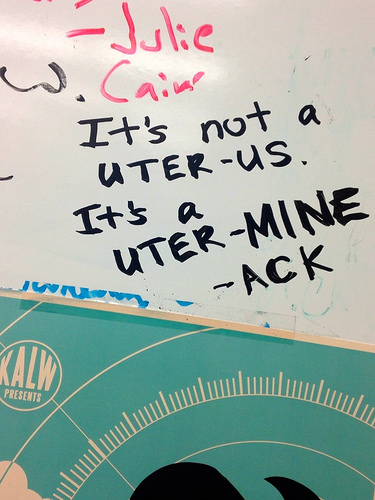 - Julie
W. Cain
It's not a
UTER-US.
It's a
UTER-MINE
-ACK
KALW
PRESENTS